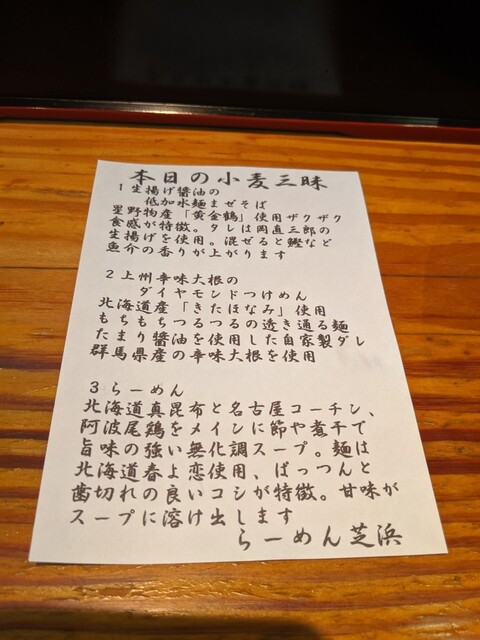 本日の小麦三昧
1生揚げ醬油の
低加水麺まぜそば
星野物産「黄金鶴」使用ザクザク
食感が特徴。タレは岡直三郎の
生揚げを使用。混ぜると鰹など
魚介の香りが上がります
2上州辛味大根の
ダイヤモンドつけめん
北海道産「きたほなみ」使用
もちもちつるつるの透き通る麺
たまり醬油を使用した自家製ダレ
群馬県産の辛味大根を使用
3らーめん
北海道真昆布と名古屋コーチン、
阿波尾鶏をメインに節や煮干で
旨味の強い無化調スープ。麺は
北海道春よ恋使用、ぱっつんと
歯切れの良いコシが特徴。甘味が
スープに溶け出します
らーめん芝浜